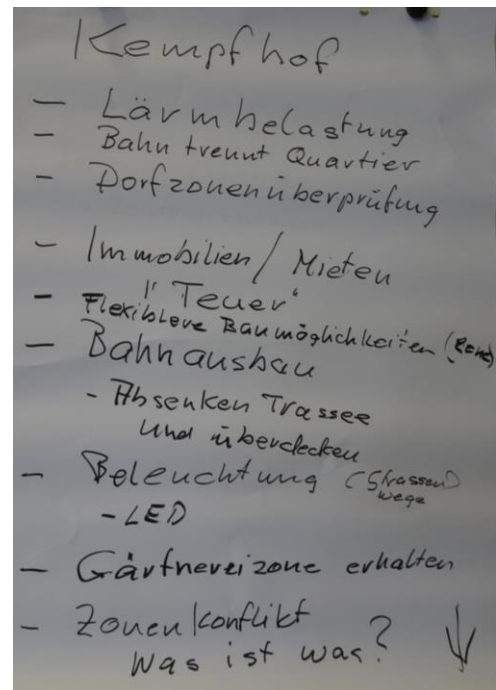 Kempfhof
– Lärmbelastung
– Bahn trennt Quartier
– Dorfzonenüberprüfung
– Immobilien / Mieten
"Teuer"
– Flexiblere Baumöglichkeiten
– Bahnausbau
- Absenken Trassee
und überdecken
– Beleuchtung (Strassen)
wege
- LED
– Gärtnereizone erhalten
– Zonenkonflikt
Was ist was?